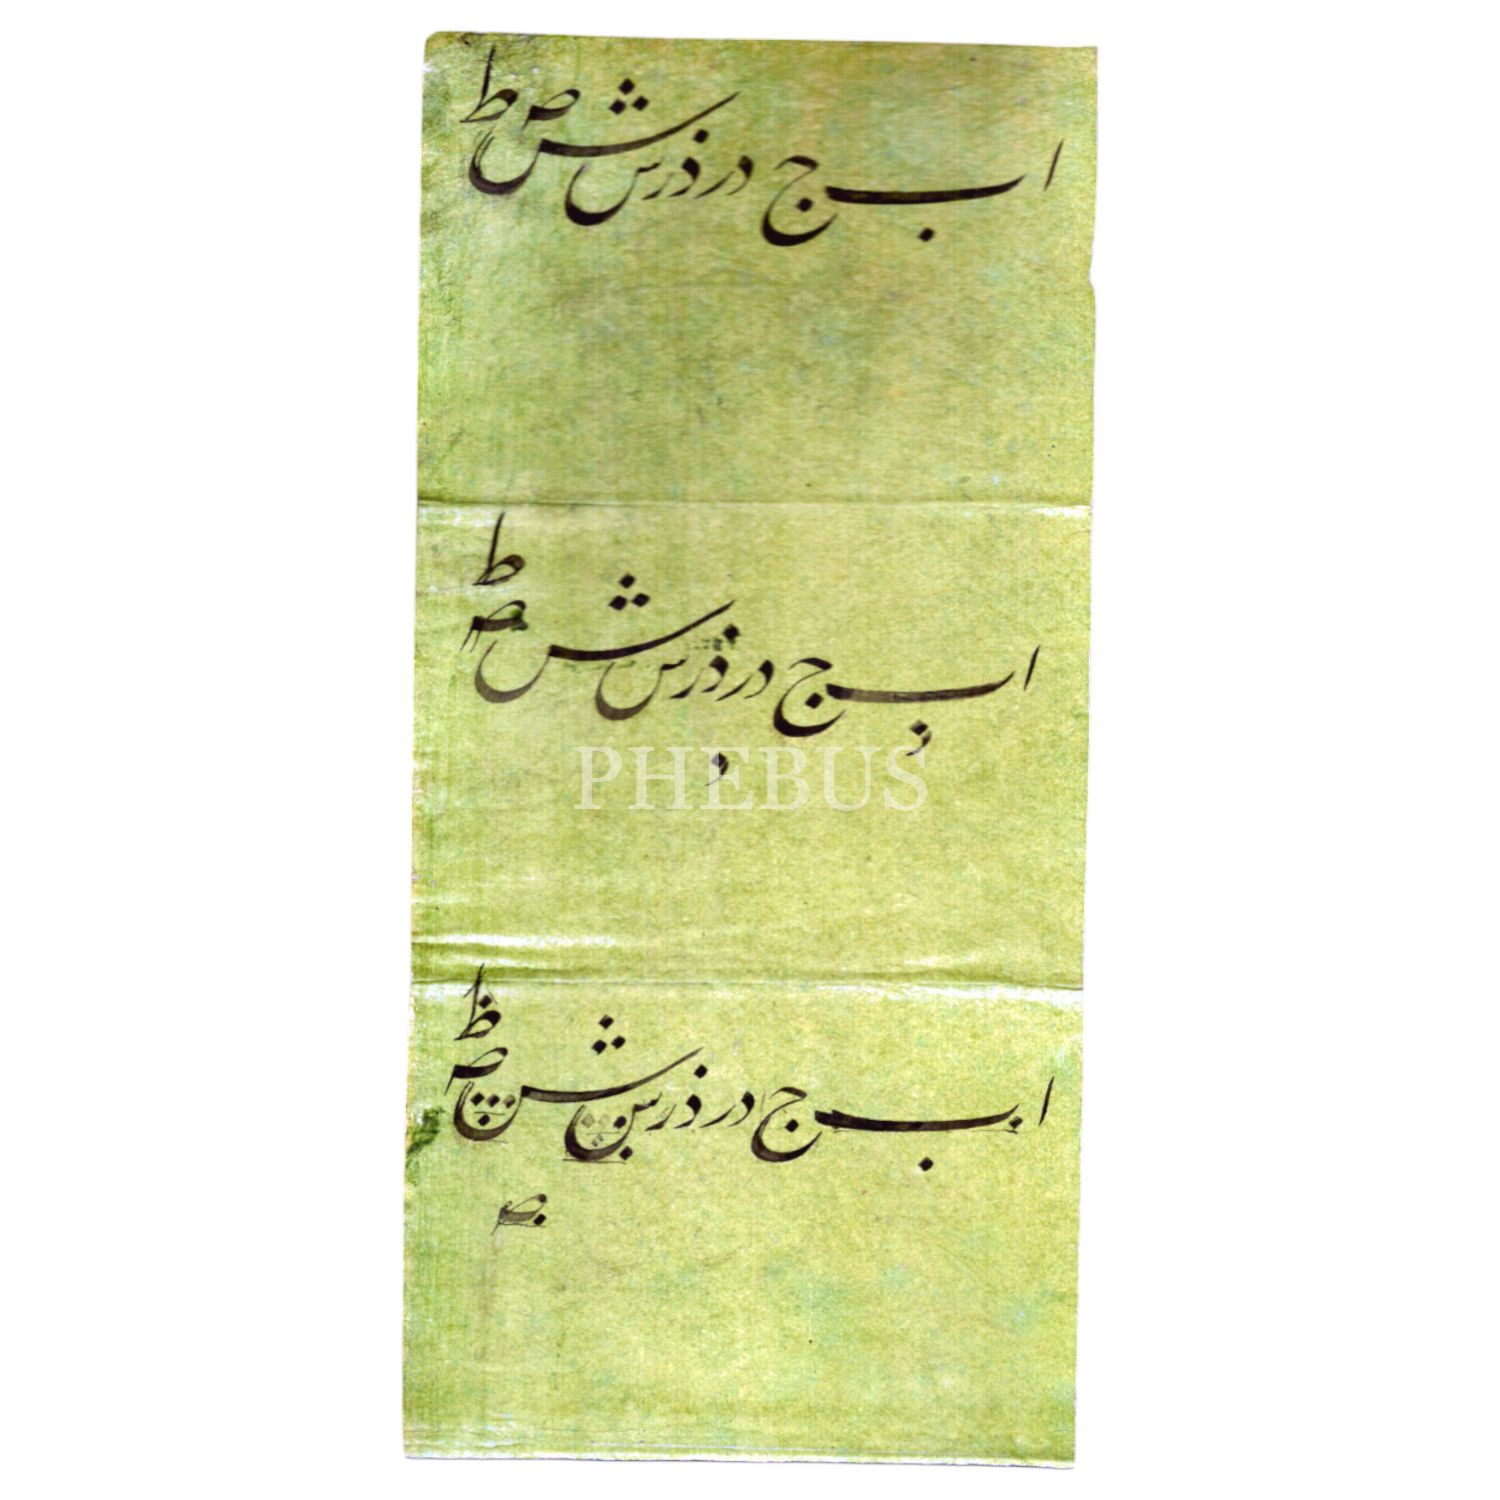 ا ب ج د ر ذ ر س ش ص ط
ا ب ج د ر ذ ر س ش ص ط
PHEBUS
ا ب ج د ر ذ ر س ش ص ظ
ص